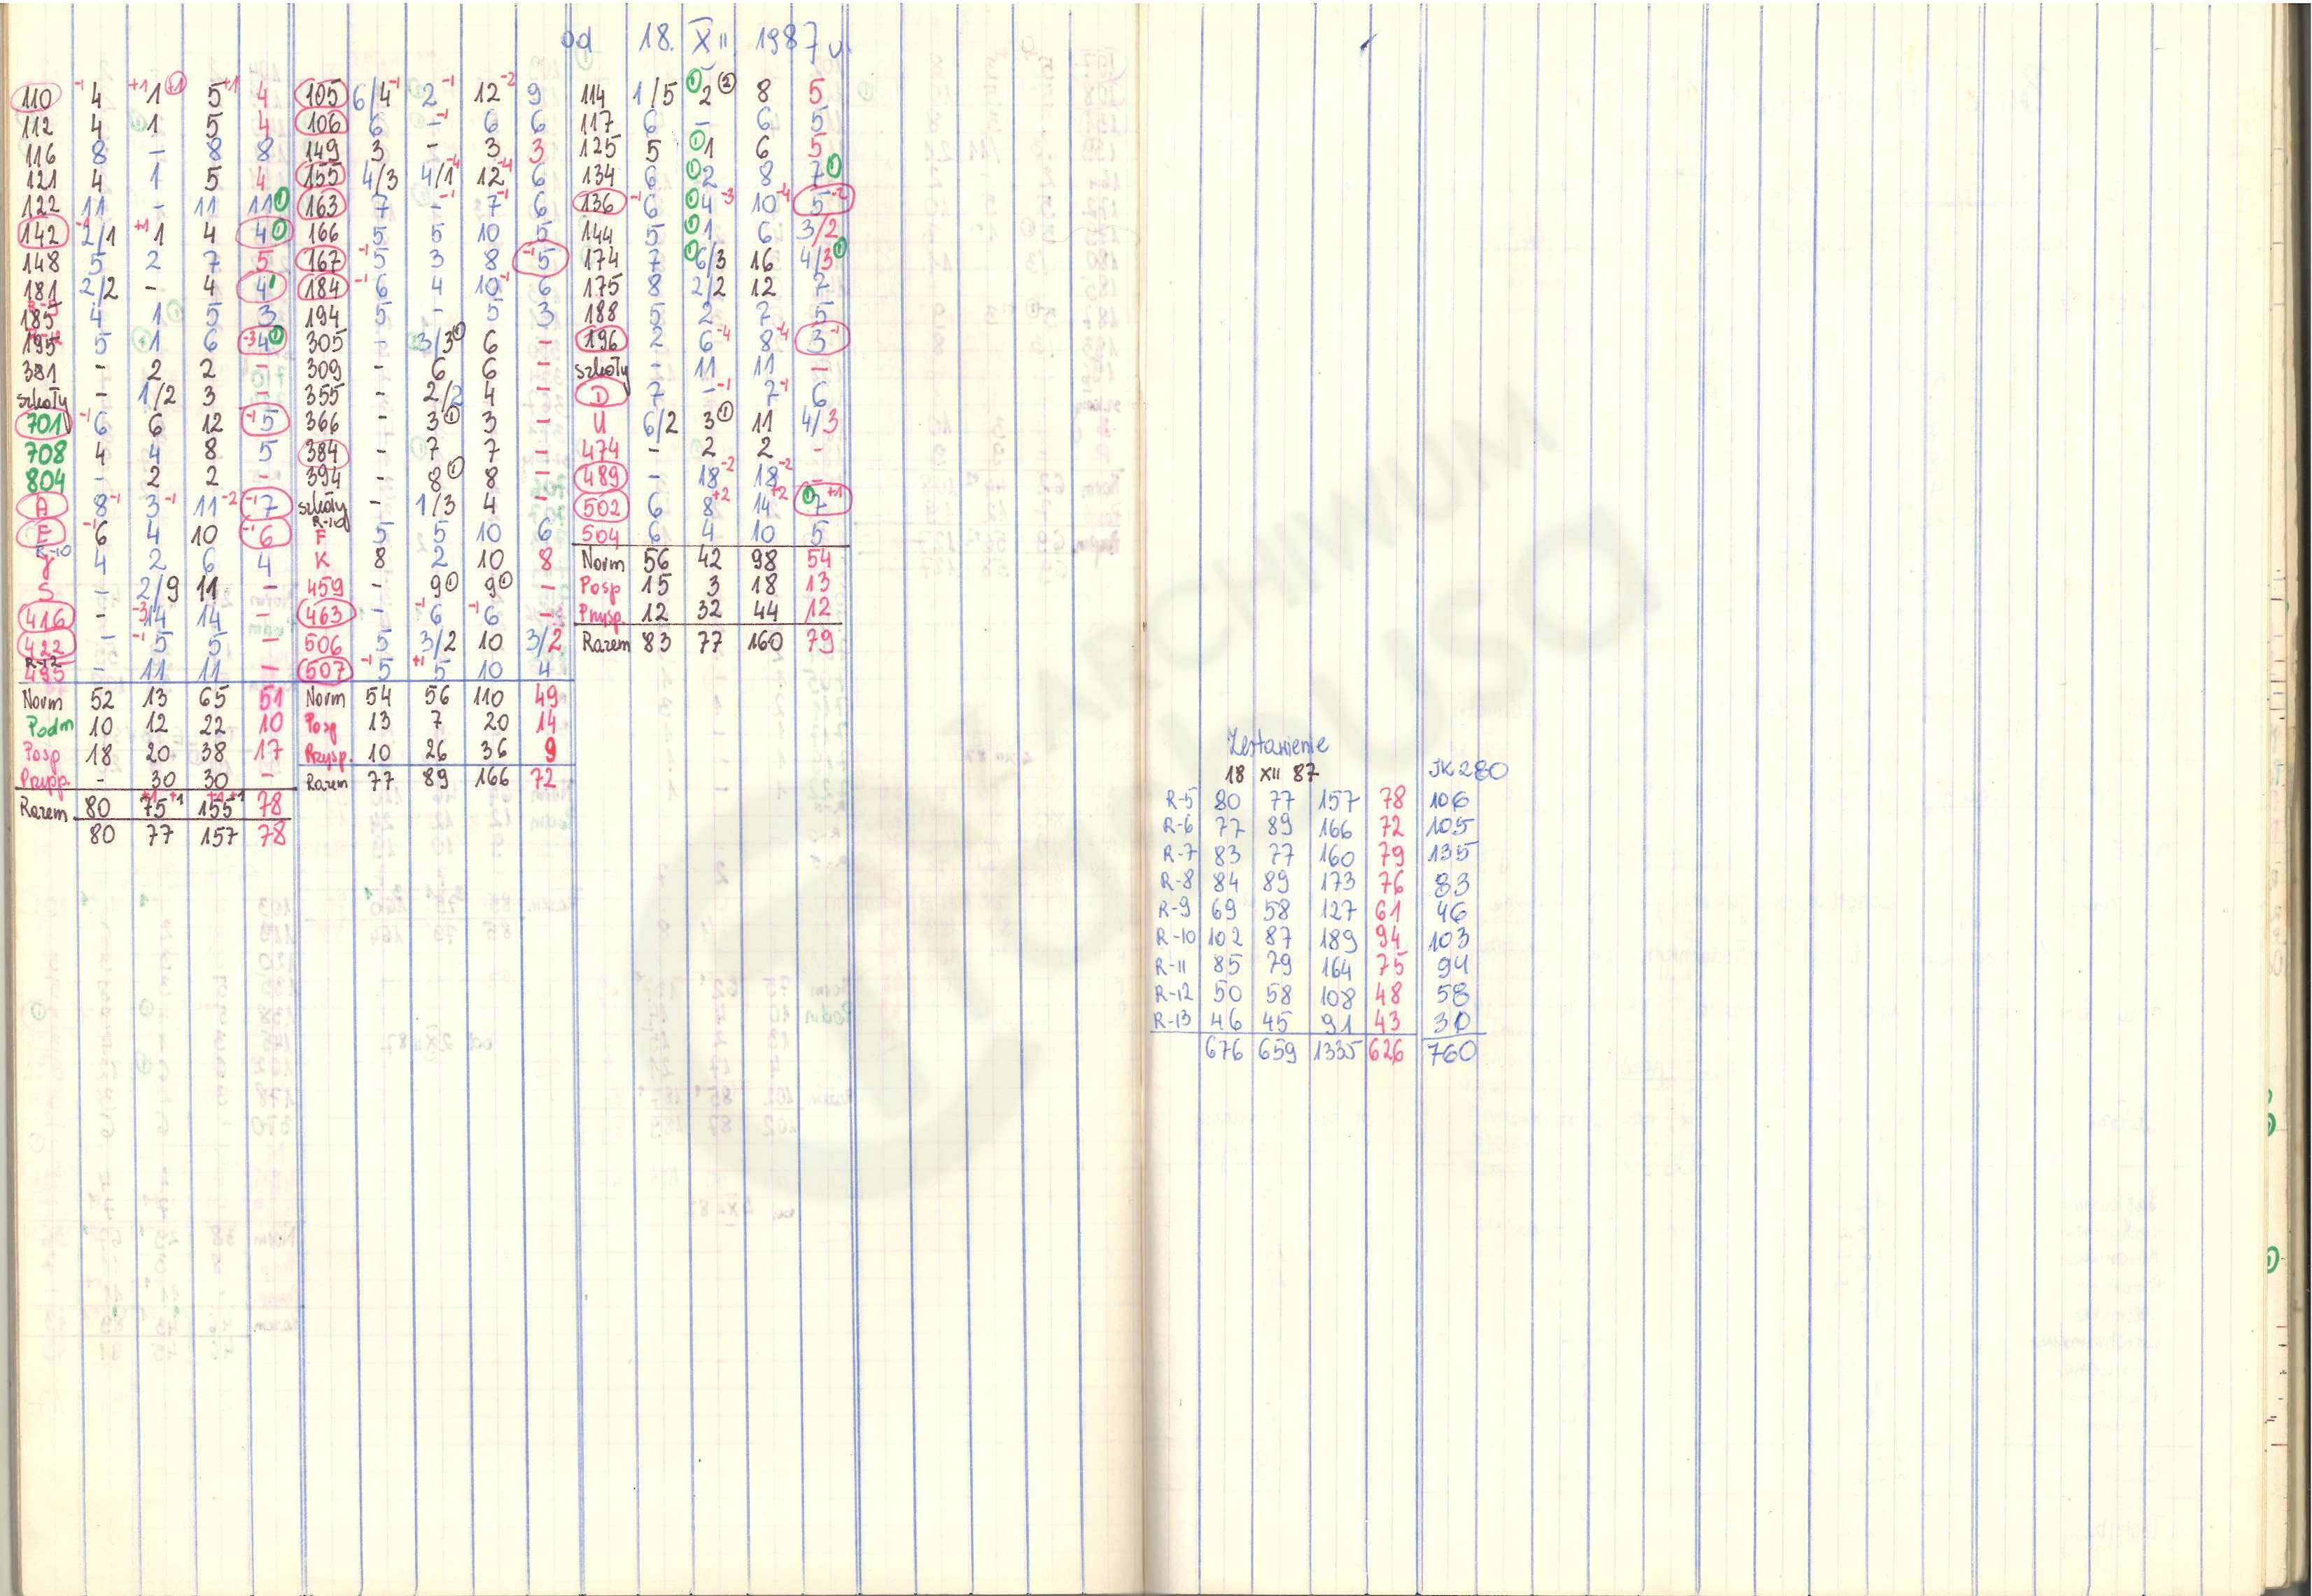 od 18. XII 1987 r.
110 -1 4 +1 1 +1 5 +1 4
112 4 1 5 4
116 8 - 8 8
121 4 1 5 4
122 11 - 11 11 1
142 -1 2/1 +1 1 4 4 1
148 5 2 7 5
181 2/2 - 4 4 1
185 4 1 5 3
195 5 1 6 -3 4 1
381 - 2 2 -
szkoły - 1/2 3 -
701 -1 6 6 12 -1 5
708 4 4 8 5
804 - 2 2 -
A 8 -1 3 -1 11 -2 -1 7
E -1 6 4 10 -1 6
R-10
J 4 2 6 4
S - 2/9 11 -
416 - -3 14 14 -
422 - -1 5 5 -
R-12
495 - 11 11 -
Norm 52 13 65 51
Podm 10 12 22 10
Posp 18 20 38 17
Przysp. - 30 30 -
Razem 80 75 +1 +1 155 +1 +1 78
80 77 157 78
105 6/4 -1 2 -1 12 -2 9
106 6 - -1 6 6
149 3 - 3 3
155 4/3 4/1 -4 12 -4 6
163 7 - -1 7 -1 6
166 5 5 10 5
167 -1 5 3 8 -1 5
184 -1 6 4 10 -1 6
194 5 - 5 3
305 - 3/3 1 6 -
309 - 6 6 -
355 - 2/2 4 -
366 - 3 1 3 -
384 - 7 7 -
394 - 8 1 8 -
szkoły - 1/3 4 -
R-10
F 5 5 10 6
K 8 2 10 8
459 - 9 1 9 1 -
463 - -1 6 -1 6 -
506 5 3/2 10 3/2
507 -1 5 +1 5 10 4
Norm 54 56 110 49
Posp 13 7 20 14
Przysp. 10 26 36 9
Razem 77 89 166 72
114 1/5 1 2 2 8 5
117 6 - 6 5
125 5 1 1 6 5
134 6 1 2 8 7 1
136 -1 6 1 4 -3 10 -4 5 -2
144 5 1 1 6 3/2
174 7 1 6/3 16 4/3 1
175 8 2/2 12 7
188 5 2 7 5
196 2 6 -4 8 -4 3 -1
szkoły - 11 11 -
D 7 - -1 7 -1 6
U 6/2 3 1 11 4/3
474 - 2 2 -
489 - 18 -2 18 -2 -
502 6 8 +2 14 +2 1 7 +1
504 6 4 10 5
Norm 56 42 98 54
Posp 15 3 18 13
Przysp. 12 32 44 12
Razem 83 77 160 79
Zestawienie
18 XII 87 JK280
R-5 80 77 157 78 106
R-6 77 89 166 72 105
R-7 83 77 160 79 135
R-8 84 89 173 76 83
R-9 69 58 127 61 46
R-10 102 87 189 94 103
R-11 85 79 164 75 94
R-12 50 58 108 48 58
R-13 46 45 91 43 30
676 659 1335 626 760
Z ARCHIWUM